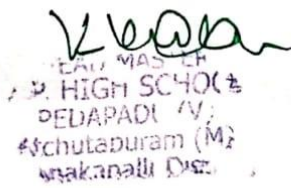 HEAD MASTER
Z.P. HIGH SCHOOL
PEDAPADU (V)
Atchutapuram (M)
Anakapalli Dist.